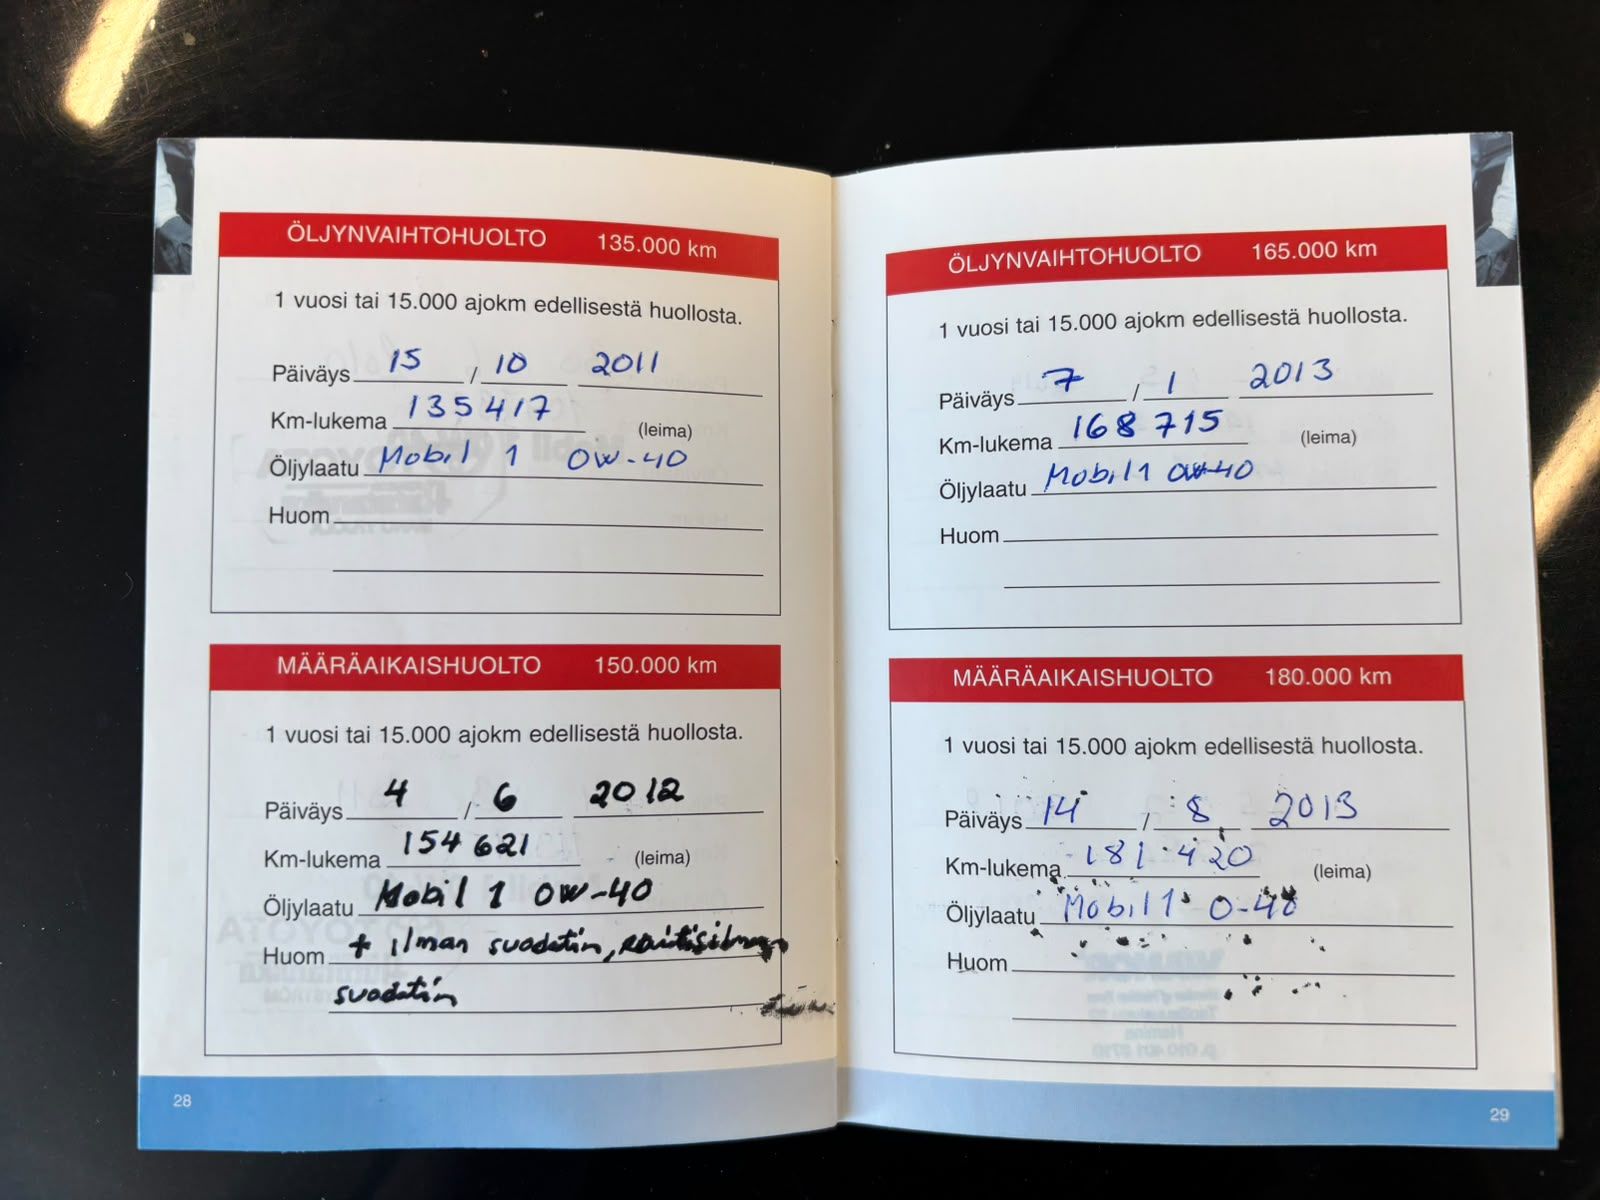 ÖLJYNVAIHTOHUOLTO 135.000 km
1 vuosi tai 15.000 ajokm edellisestä huollosta.
Päiväys 15 / 10 2011
Km-lukema 135417 (leima)
Öljylaatu Mobil 1 0W-40
Huom
MÄÄRÄAIKAISHUOLTO 150.000 km
1 vuosi tai 15.000 ajokm edellisestä huollosta.
Päiväys 4 / 6 2012
Km-lukema 154621 (leima)
Öljylaatu Mobil 1 0W-40
Huom + ilman suodatin,
suodatin
28
ÖLJYNVAIHTOHUOLTO 165.000 km
1 vuosi tai 15.000 ajokm edellisestä huollosta.
Päiväys 7 / 1 2013
Km-lukema 168715 (leima)
Öljylaatu Mobil 1 0W-40
Huom
MÄÄRÄAIKAISHUOLTO 180.000 km
1 vuosi tai 15.000 ajokm edellisestä huollosta.
Päiväys 14 / 8 2013
Km-lukema 181 420 (leima)
Öljylaatu Mobil 1 0-40
Huom
29